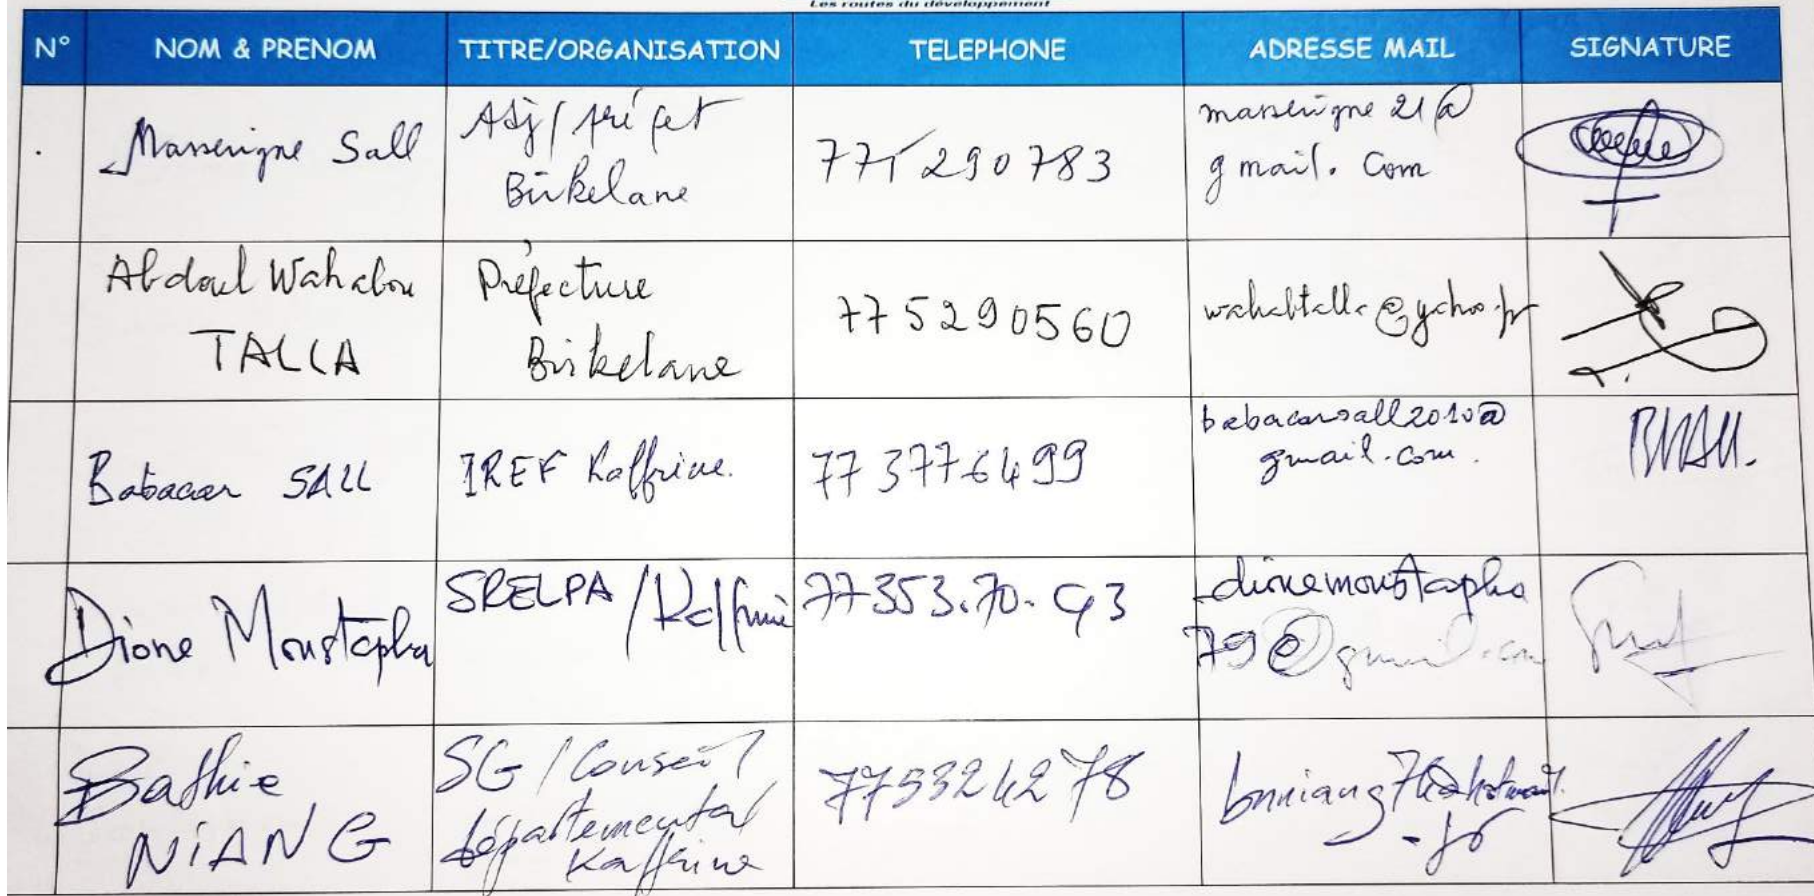 Les routes du développement
N° NOM & PRENOM TITRE/ORGANISATION TELEPHONE ADRESSE MAIL SIGNATURE
Massérigne Sall
Adj/préfet
Birkelane
775290783
masserigne 21@
gmail. Com
Abdoul Wahabou
TALLA
Préfecture
Birkelane
775290560
wahabtalla@yahoo.fr
Babacar SALL
IREF Kaffrine.
773776499
babacarsall2010@
gmail.com.
Dione Moustapha
SRELPA/Kaffrine
77353.70.93
dionemoustapha
79@gmail.com
Bathie
NIANG
SG/Conseil
départemental
Kaffrine
775324278
bnniang76@hotmail.
-fr